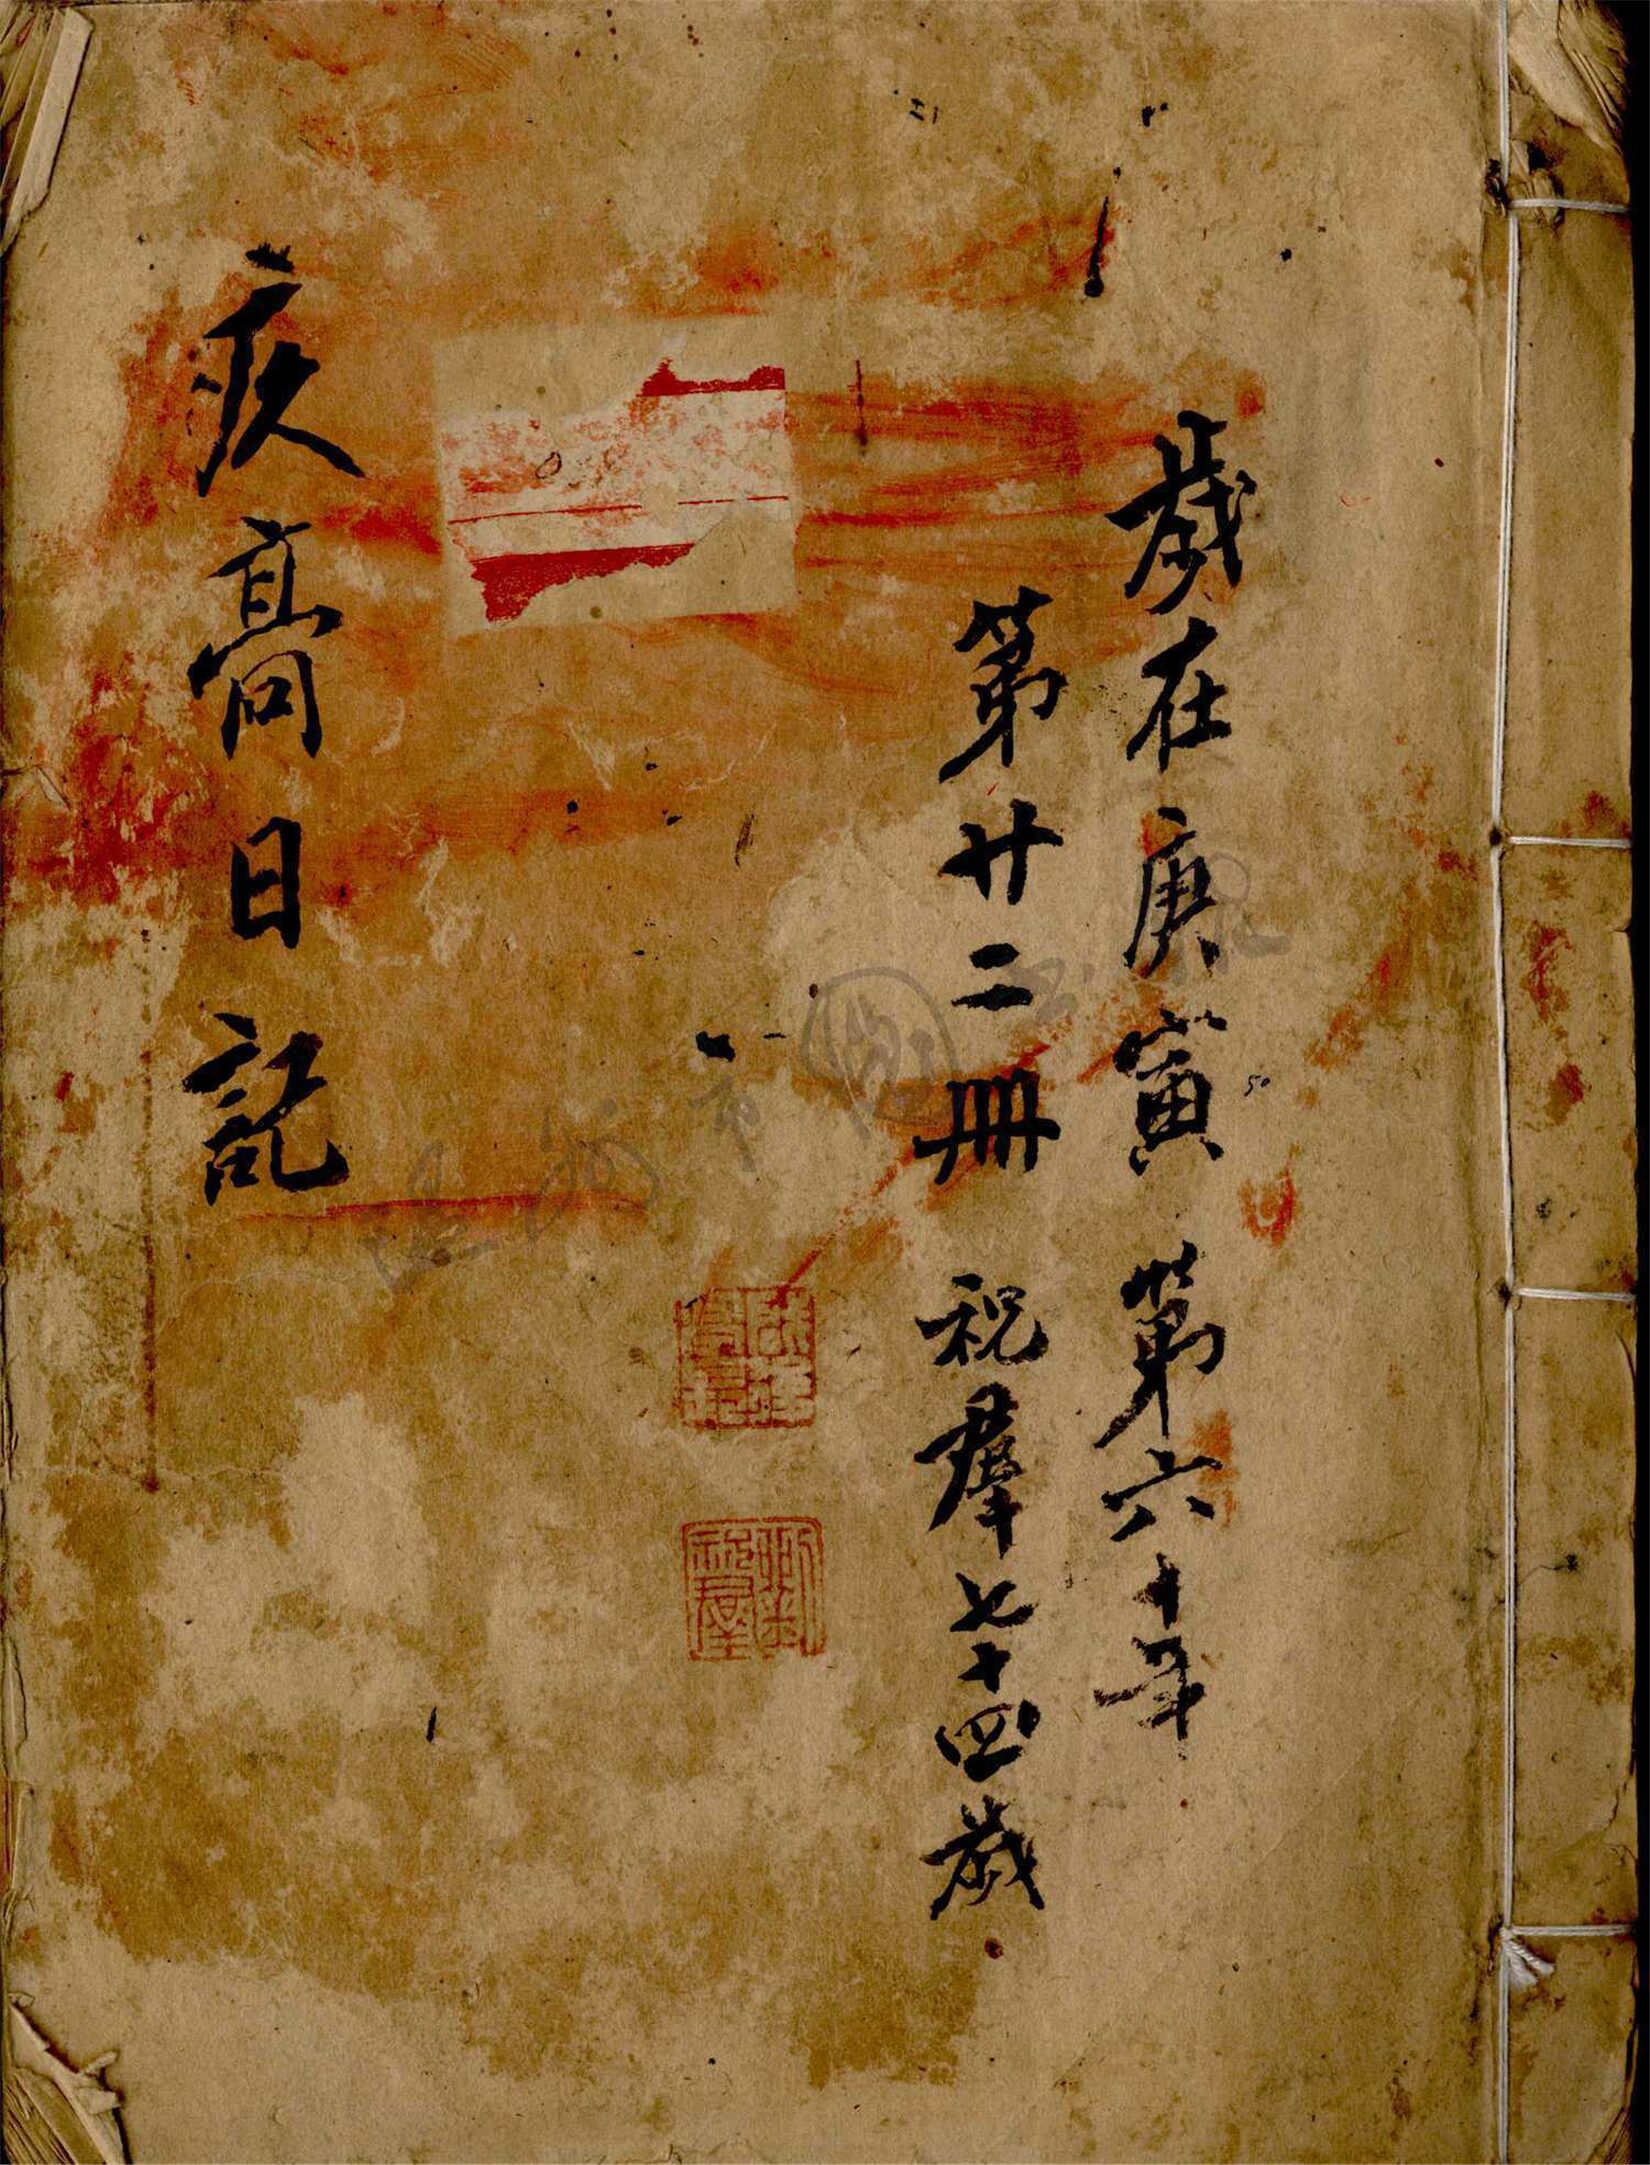 歲在庚寅 第六十年
第廿二冊 祝羣七十四歲
疚䯧日記